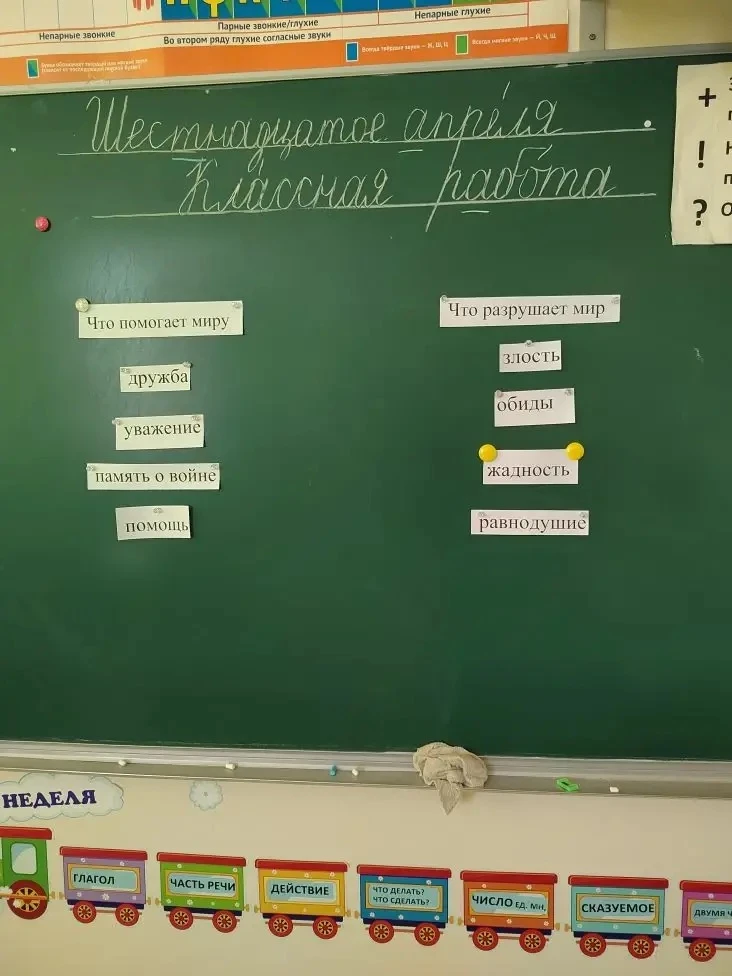 Парные звонкие/глухие
Непарные глухие
Непарные звонкие
Во втором ряду глухие согласные звуки
Всегда твёрдые звуки – Ж, Ш, Ц
Всегда мягкие звуки – Й, Ч, Щ
Шестнадцатое апреля.
Классная работа
+
!
?
Что помогает миру
дружба
уважение
память о войне
помощь
Что разрушает мир
злость
обиды
жадность
равнодушие
НЕДЕЛЯ
ГЛАГОЛ
ЧАСТЬ РЕЧИ
ДЕЙСТВИЕ
ЧТО ДЕЛАТЬ?
ЧТО СДЕЛАТЬ?
ЧИСЛО ЕД. МН.
СКАЗУЕМОЕ
ДВУМЯ